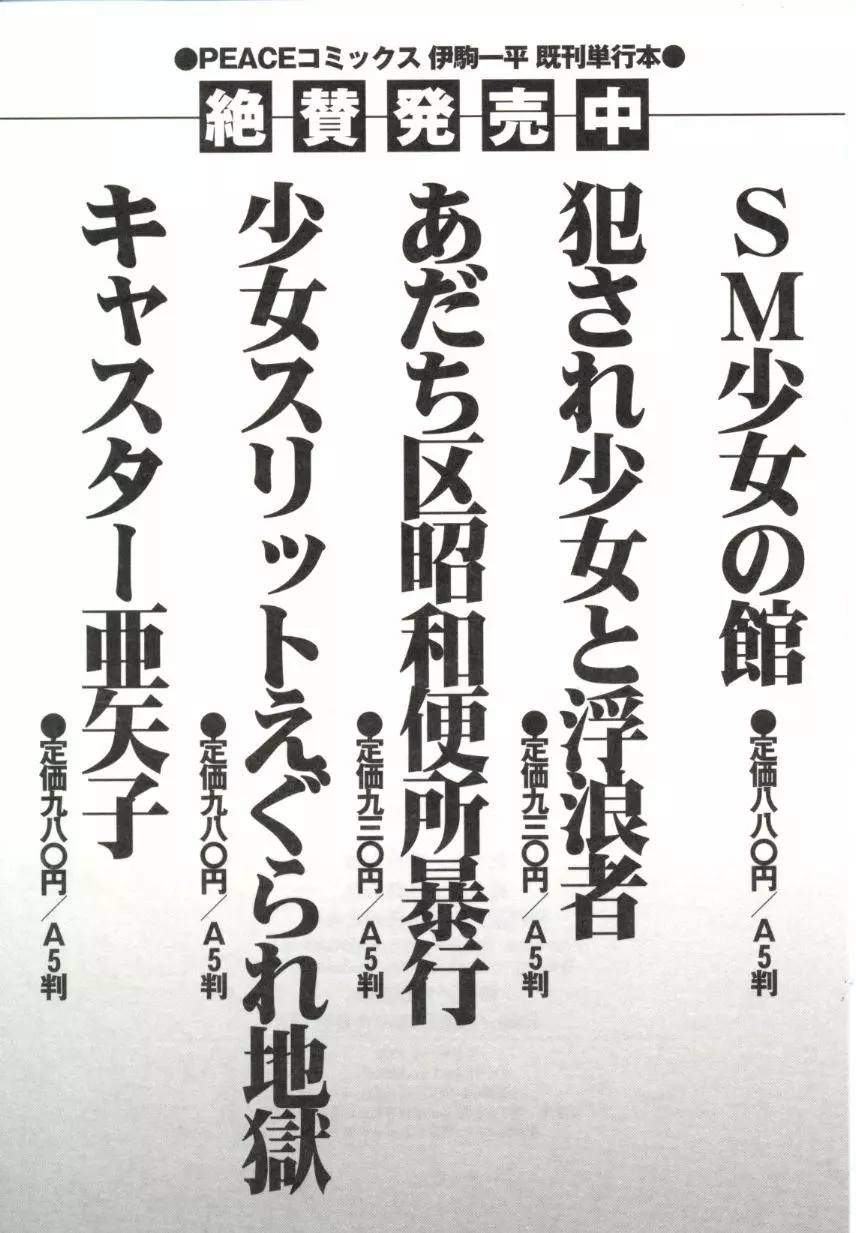 ●PEACEコミックス 伊駒一平 既刊単行本●
絶賛発売中
SM少女の館
●定価八八〇円／A5判
犯され少女と浮浪者
●定価九三〇円／A5判
あだち区昭和便所暴行
●定価九三〇円／A5判
少女スリットえぐられ地獄
●定価九八〇円／A5判
キャスター亜矢子
●定価九八〇円／A5判